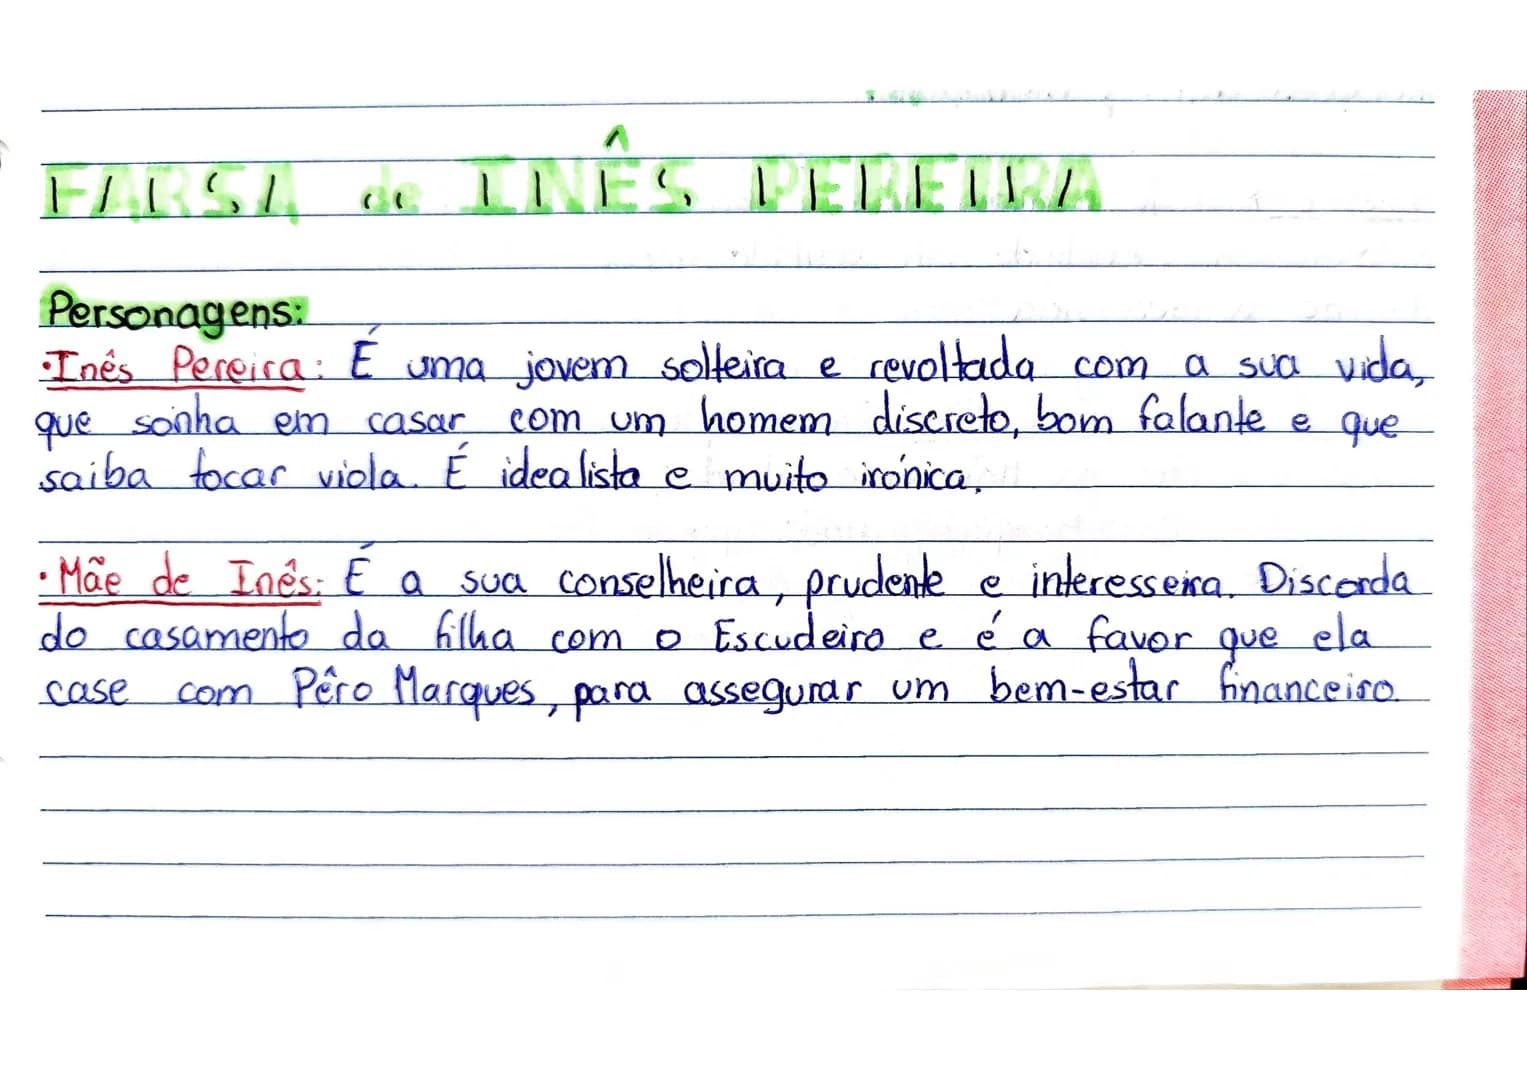 FARSA de INÊS PEREIRA
Personagens:
•Inês Pereira: É uma jovem solteira e revoltada com a sua vida,
que sonha em casar com um homem discreto, bom falante e que
saiba tocar viola. É idealista e muito irónica.
•Mãe de Inês: É a sua conselheira, prudente e interesseira. Discorda
do casamento da filha com o Escudeiro e é a favor que ela
case com Pêro Marques, para assegurar um bem-estar financeiro.